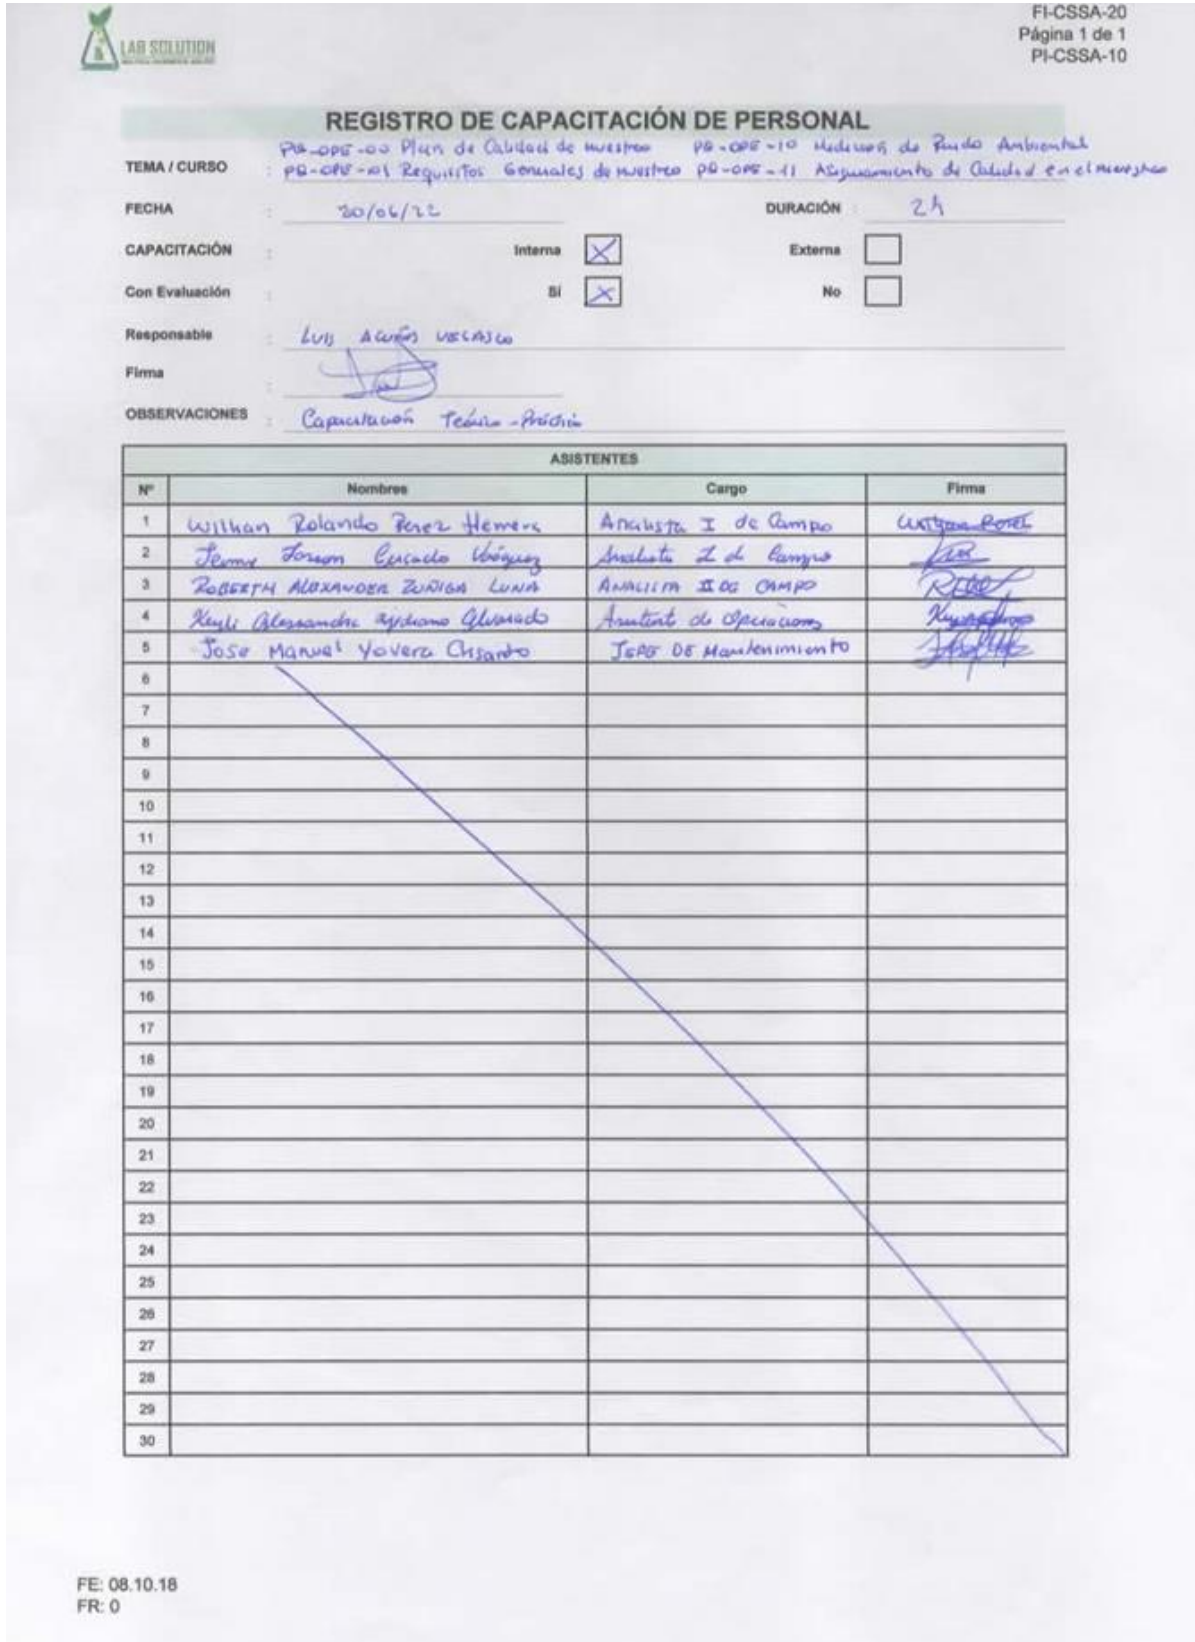 LAB SOLUTION
FI-CSSA-20
Página 1 de 1
PI-CSSA-10
REGISTRO DE CAPACITACIÓN DE PERSONAL
PG-OPE-00 Plan de Calidad de muestreo PG-OPE-10 Medicion de Ruido Ambiental
TEMA / CURSO : PG-OPE-01 Requisitos Generales de muestreo PG-OPE-11 Aseguramiento de Calidad en el muestreo
FECHA : 20/06/22 DURACIÓN : 2h
CAPACITACIÓN : Interna X Externa
Con Evaluación : Sí X No
Responsable : Luis Acuña Velasco
Firma :
OBSERVACIONES : Capacitación Teórico-Práctica
ASISTENTES
Nº Nombres Cargo Firma
1 Rolando Perez Analista I de Campo
2 Analista I de Campo
3 ROBERTH ALEXANDER ZUÑIGA LUNA ANALISTA II DE CAMPO
4 Alessandra Alvarado Asistente de Operaciones
5 Jose Manuel Yovera Crisanto JEFE DE Mantenimiento
6
7
8
9
10
11
12
13
14
15
16
17
18
19
20
21
22
23
24
25
26
27
28
29
30
FE: 08.10.18
FR: 0